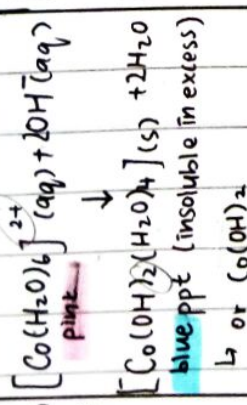 [Co(H₂O)₆]²⁺(aq) + 2OH⁻(aq)
pink ↓
[Co(OH)₂(H₂O)₄](s) + 2H₂O
blue ppt (insoluble in excess)
↳ or Co(OH)₂